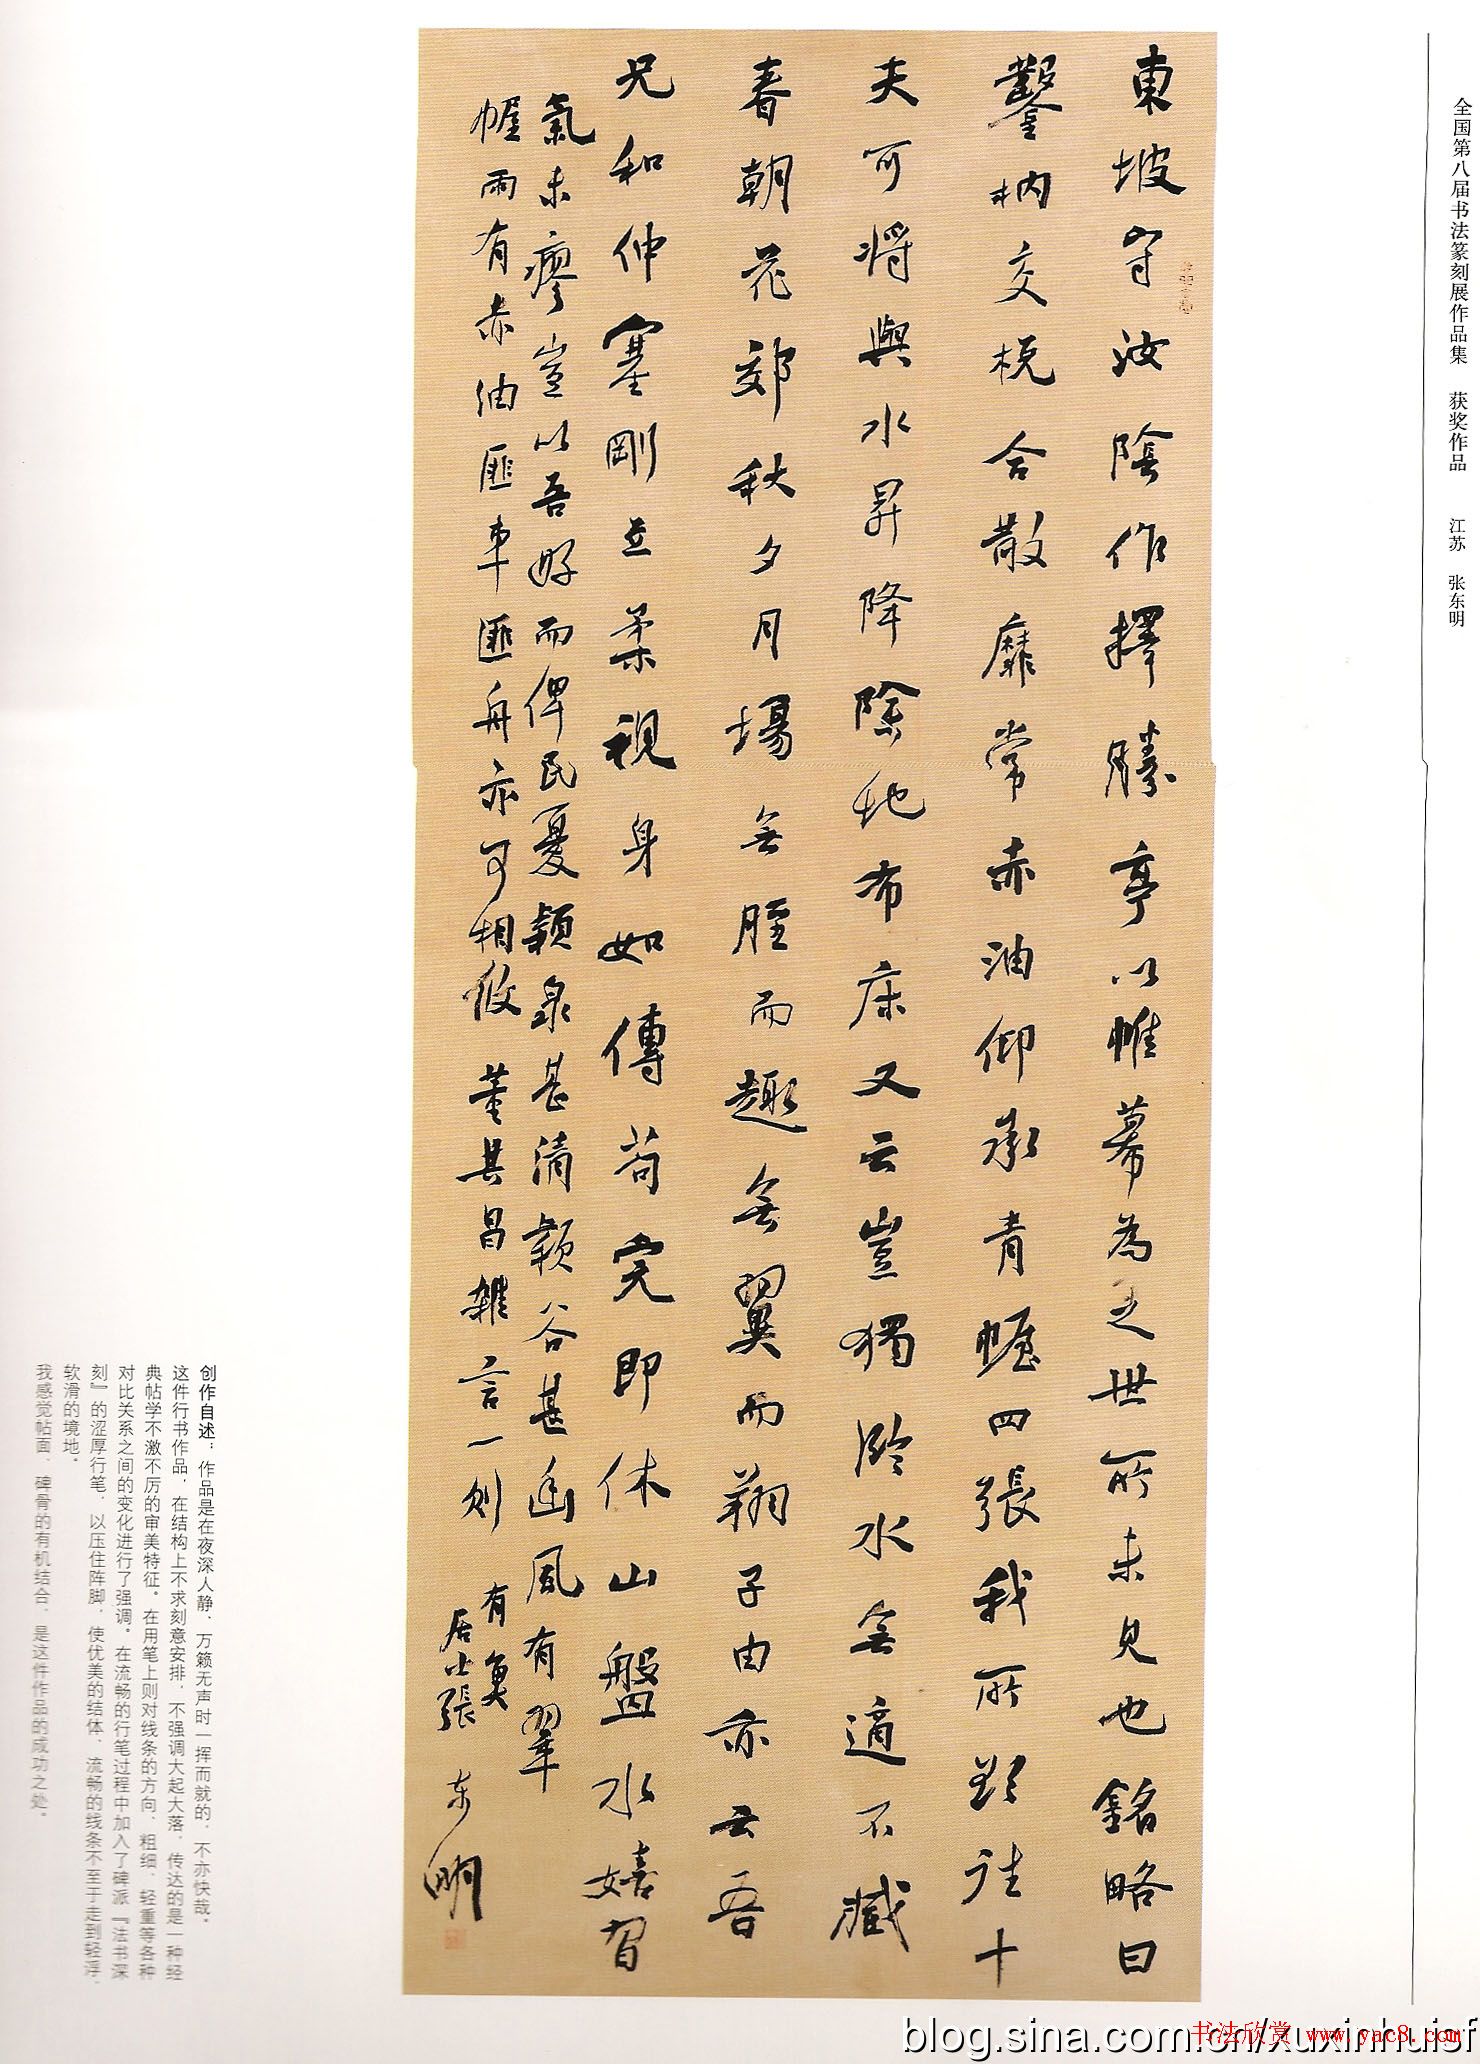 全国第八届书法篆刻展作品集 获奖作品 江苏 张东明
東坡守汝陰作擇勝亭以帷幕為之世所未見也銘略曰
鑿枘交梲合散靡常赤油仰承青幄四張我所欲往十
夫可將與水昇降除地布床又云豈獨臨水無適不臧
春朝花郊秋夕月場無脛而趨無翼而翔子由亦云吾
兄和仲塞剛立柔視身如傳苟完即休山盤水嬉習
氣未瘳豈以吾好而俾民憂穎泉甚清穎谷甚幽風有翠
幄雨有赤油匪車匪舟亦可相攸 董其昌雜言一則 有
居士張東明
创作自述：作品是在夜深人静、万籁无声时一挥而就的，不亦快哉。
这件行书作品，在结构上不求刻意安排，不强调大起大落，传达的是一种经
典帖学不激不厉的审美特征。在用笔上则对线条的方向、粗细、轻重等各种
对比关系之间的变化进行了强调。在流畅的行笔过程中加入了碑派『法书深
刻』的涩厚行笔，以压住阵脚，使优美的结体、流畅的线条不至于走到轻浮、
软滑的境地。
我感觉帖面、碑骨的有机结合，是这件作品的成功之处。
blog.sina.com.cn/xuxinhuisf
书法欣赏 www.yac8.com